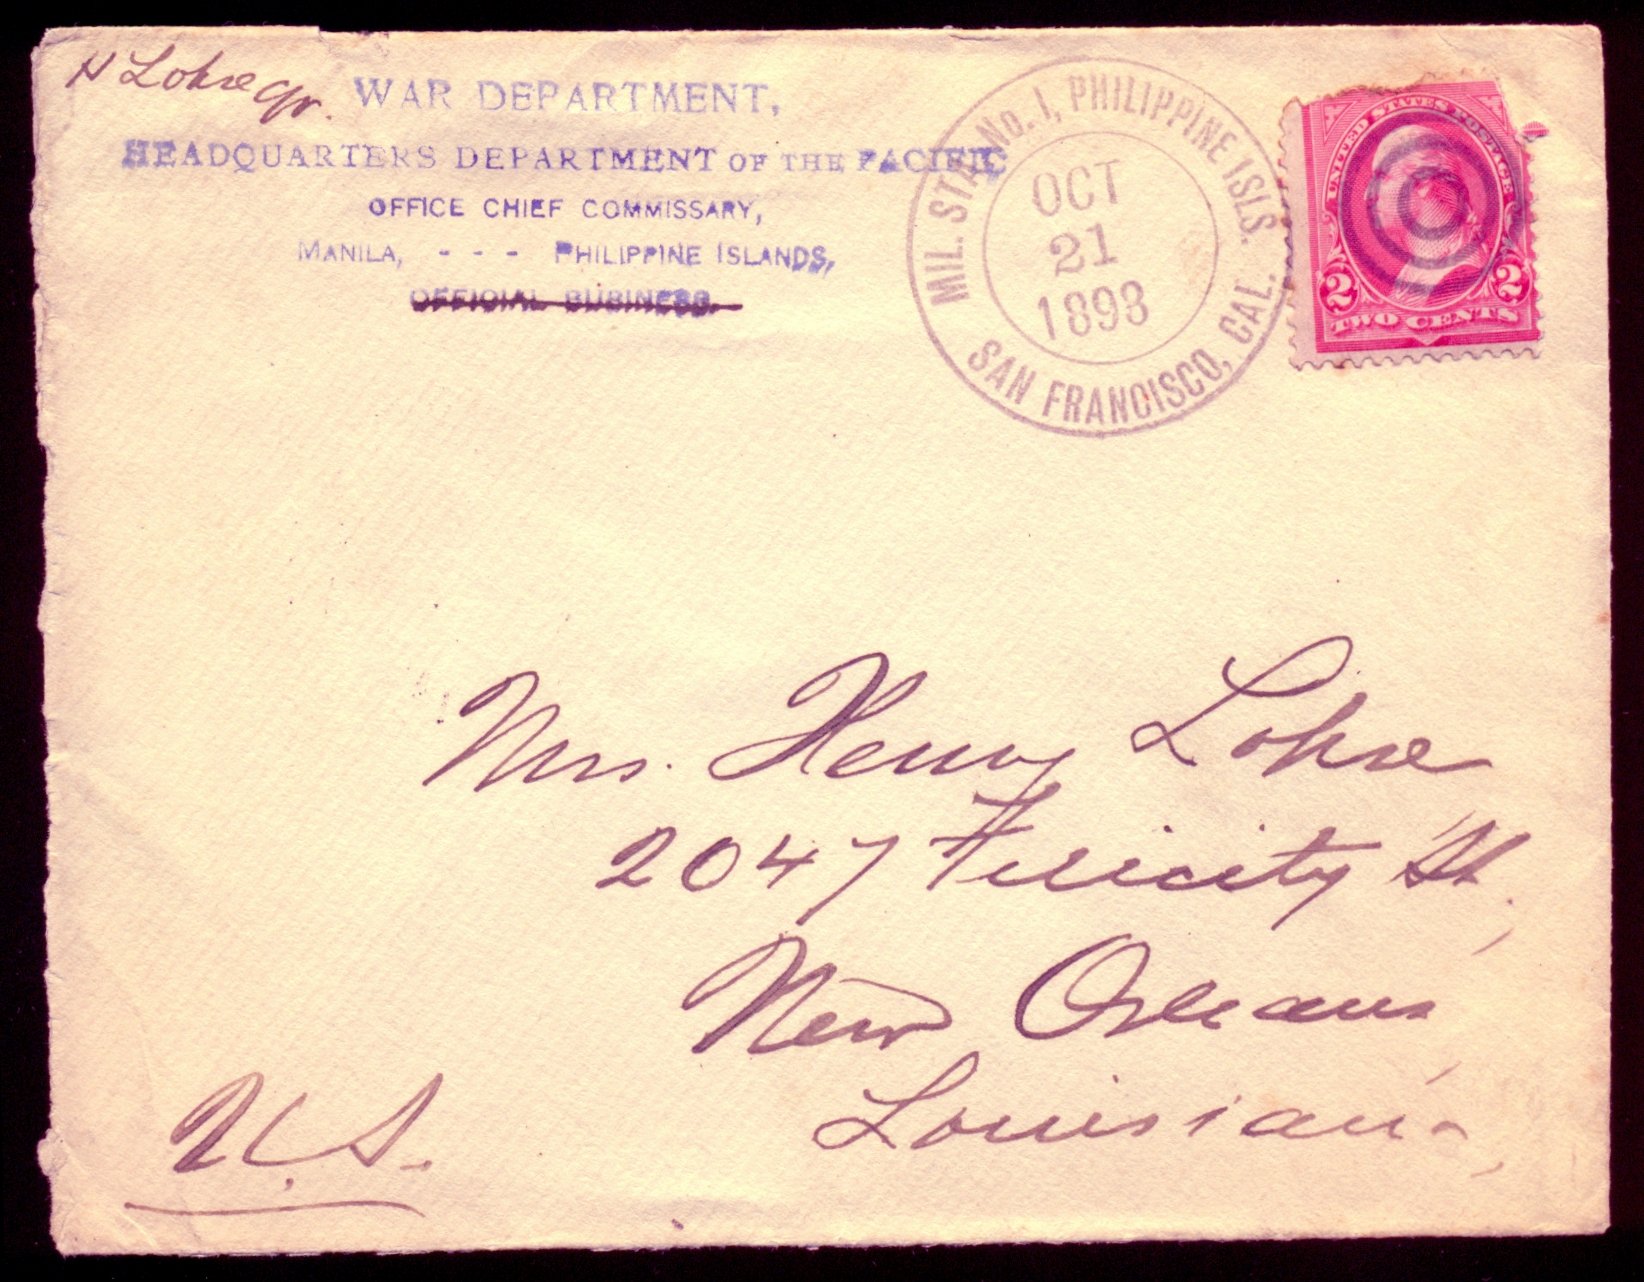 H Lohse Jr.
WAR DEPARTMENT,
HEADQUARTERS DEPARTMENT OF THE PACIFIC
OFFICE CHIEF COMMISSARY,
MANILA, - - - PHILIPPINE ISLANDS,
OFFICIAL BUSINESS.
MIL. STA. No. 1, PHILIPPINE ISLS.
OCT
21
1898
SAN FRANCISCO, CAL.
UNITED STATES POSTAGE
2 2
TWO CENTS
Mrs. Henry Lohse
2047 Felicity St.,
New Orleans,
Louisiana,
U.S.